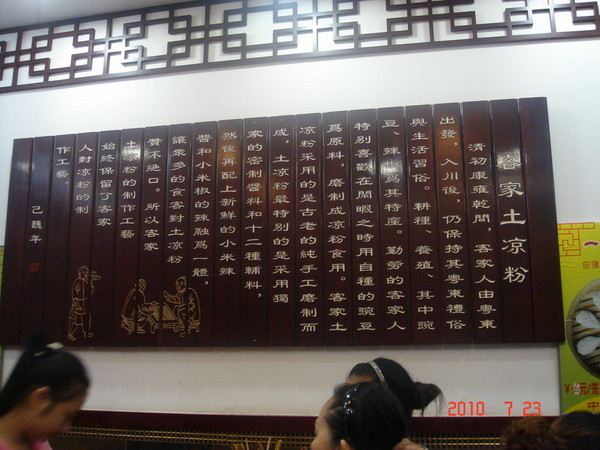 客家土凉粉
清初康雍乾間，客家人由粤東
出發，入川後，仍保持其粤東禮俗
與生活習俗。耕種、養殖、其中豌
豆、辣椒爲其特産。勤勞的客家人
特别喜歡在閑暇之時用自種的豌豆
爲原料，磨制成凉粉食用。客家土
凉粉采用的是古老的純手工磨制而
成，土凉粉最特别的是采用獨
家的密制醬料和十二種輔料，
然後再配上新鮮的小米辣
醬和小米椒的辣融爲一體，
讓衆多的食客對土凉粉
贊不絶口。所以客家
土凉粉的制作工藝
始終保留了客家
人對凉粉的制
作工藝。
己醜年
2010 7 23